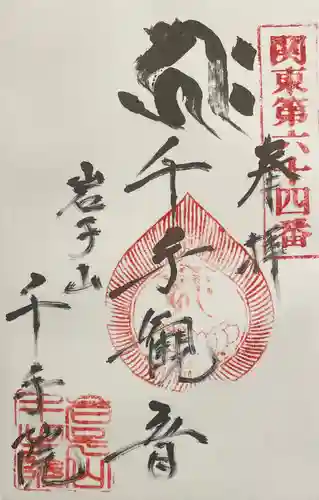 関東第六十四番
奉拝
千手観音
岩子山
千手院